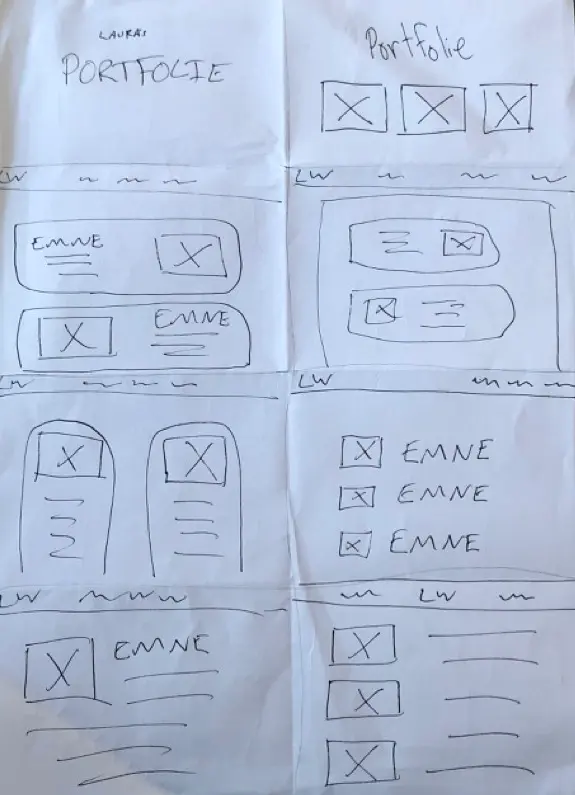 LAURAS
PORTFOLIE
Portfolie
LW
EMNE
EMNE
LW
LW
LW
EMNE
EMNE
EMNE
LW
EMNE
LW